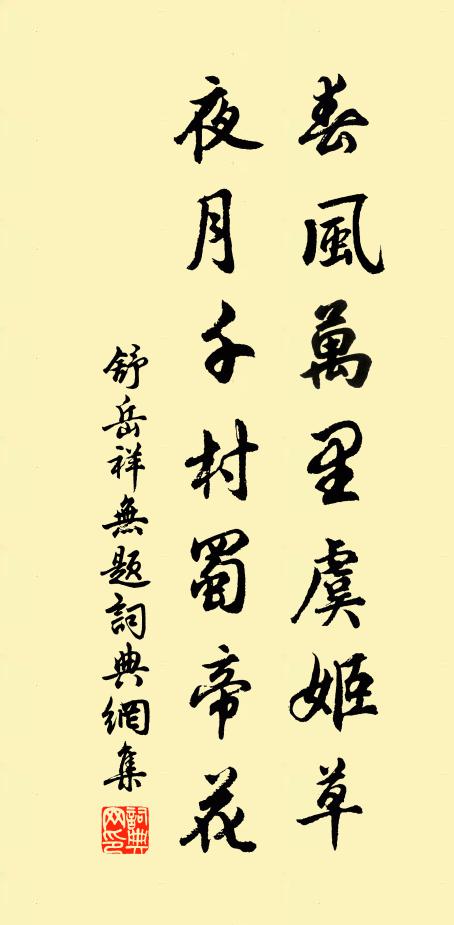 春風萬里虞姬草
夜月千村蜀帝花
舒岳祥無題詞典網集
詞典網印